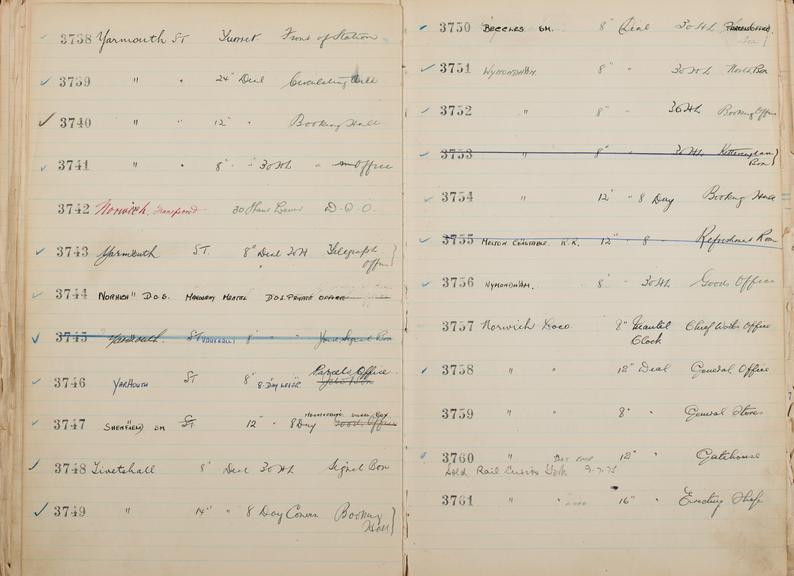 3738 Yarmouth ST Turret Front of Station
3739 " " 24" Dial Circulating
3740 " " 12" " Booking Hall
3741 " " 8" " 30 Hr " Office
3742 Norwich. 30 Hour Lever D.O.O.
3743 Yarmouth ST. 8" Dial 30 H Telegraph
Office
3744 NORWICH DOS. MANTEL DOS. PRIVATE OFFICE
3745 Yarmouth. ST VAUXHALL 8" " " Yard Signal Box
3746 YARMOUTH ST 8" 8-DAY LEVER Parcels Office
3747 SHENFIELD SM ST 12" " 8 Day Goods Office
3748 Tivetshall 8" Dial 30 Hr Signal Box
3749 " 14" " 8 Day Booking
Hall
3750 BECCLES SM. 8" Dial 30 Hr
3751 WYMONDHAM. 8" " 30 Hr North Box
3752 " 8" " 30 Hr Booking Office
3753 " 8" " 30 Hr Ketteringham
Box
3754 " 12" " 8 Day Booking Hall
3755 MELTON CONSTABLE. R.R. 12" " 8 " Refreshment Room
3756 WYMONDHAM. 8" " 30 Hr Goods Office
3757 Norwich Loco 8" Mantel Chief Works Office
Clock
3758 " " 12" Dial General Office
3759 " " 8" " General Stores
3760 " " 12" " Gatehouse
Sold Rail Curios York 9-7-75
3761 " " 16" " Erecting Shop